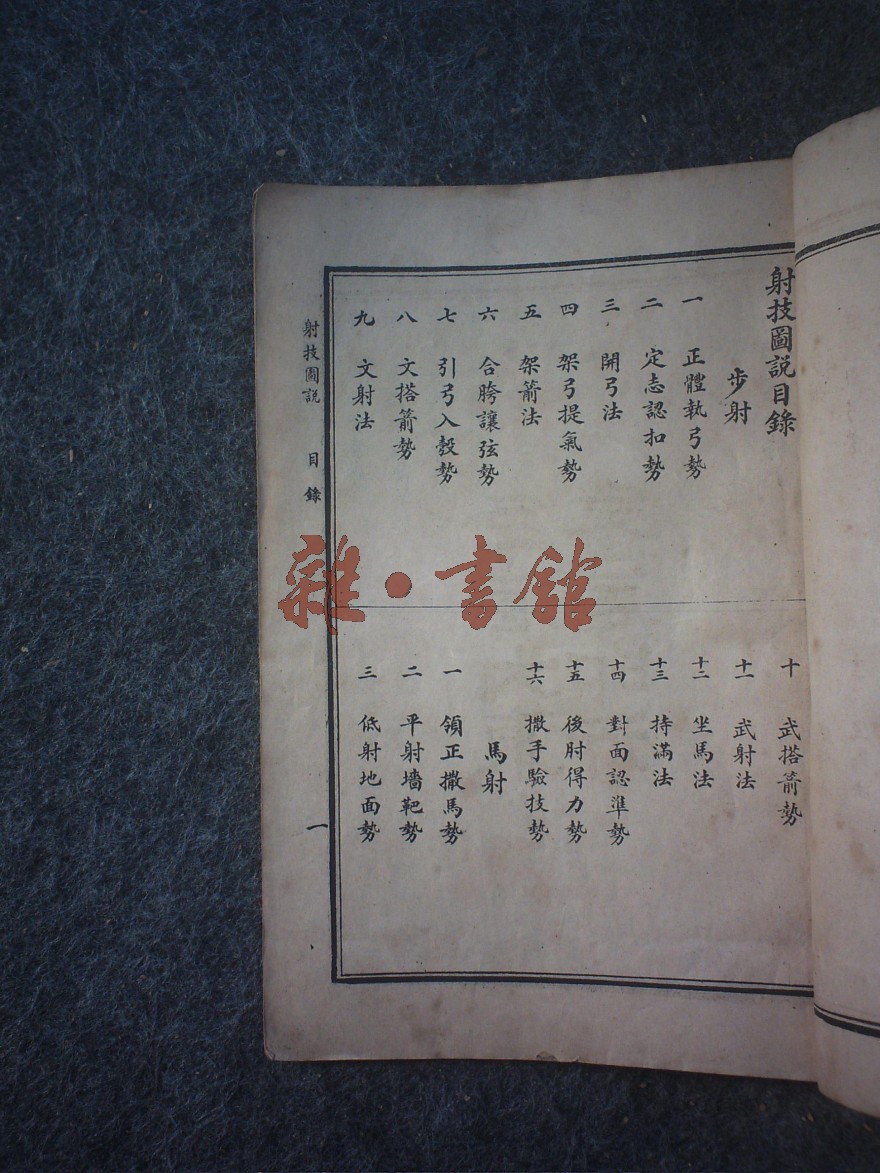 射技圖説目錄
步射
一 正體執弓勢
二 定志認扣勢
三 開弓法
四 架弓提氣勢
五 架箭法
六 合胯讓弦勢
七 引弓入彀勢
八 文搭箭勢
九 文射法
十 武搭箭勢
十一 武射法
十二 坐馬法
十三 持滿法
十四 對面認準勢
十五 後肘得力勢
十六 撒手驗技勢
馬射
一 領正撒馬勢
二 平射墻靶勢
三 低射地面勢
射技圖説 目錄 一
雜·書館